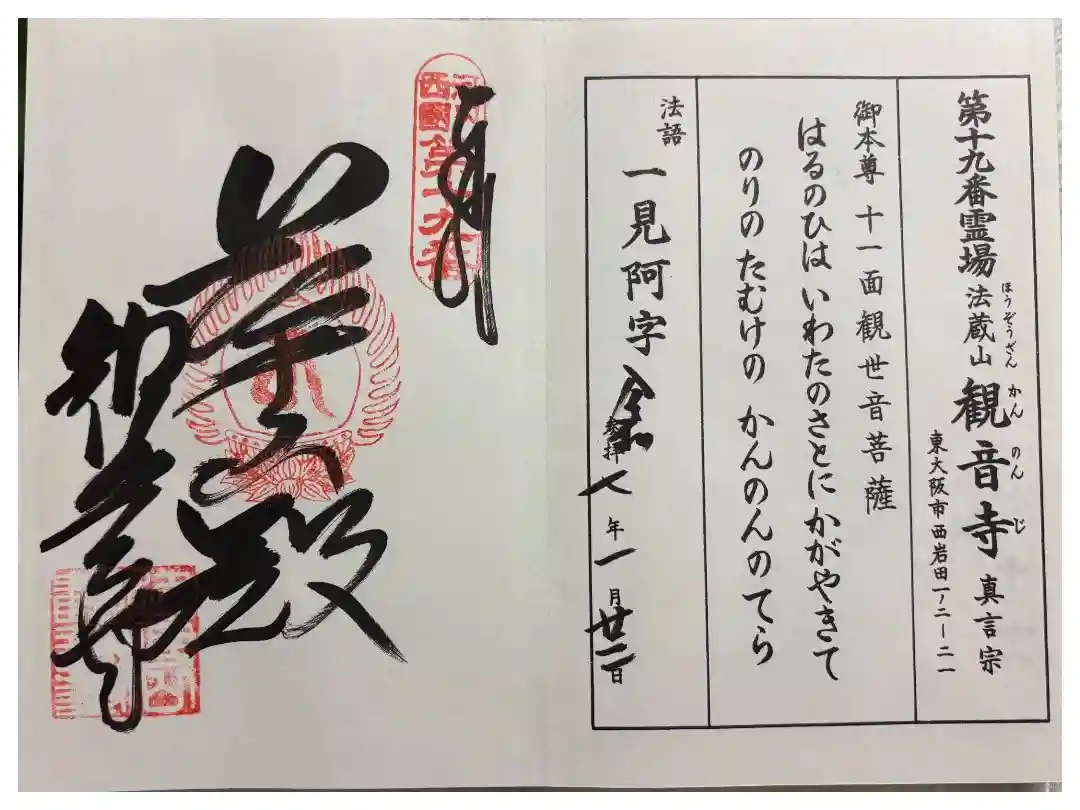 第十九番霊場 法蔵山 観音寺 真言宗
ほうぞうざん かんのんじ
東大阪市西岩田一ノ二ー二一
御本尊 十一面観世音菩薩
はるのひは いわたのさとに かがやきて
のりの たむけの かんのんのてら
法語 一見阿字
令和
参拝 七年一月廿二日
奉拝
西國第十九番
大悲殿
観音寺